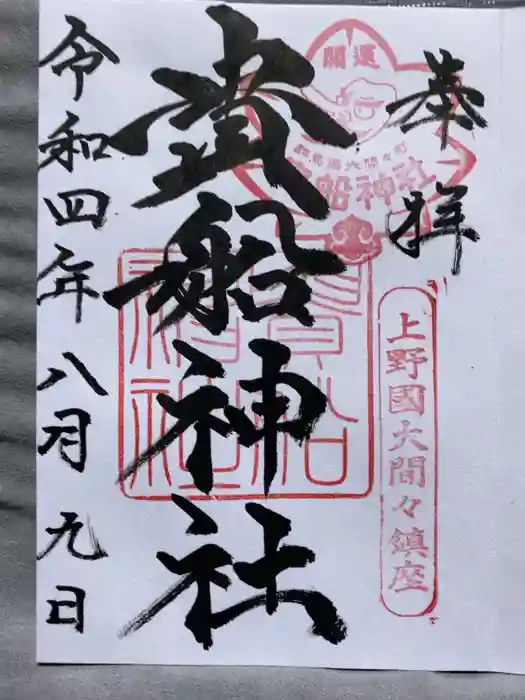 奉拝
開運
群馬県大間々町
貴船神社
上野國大間々鎮座
貴船神社
貴船神社
令和四年八月九日